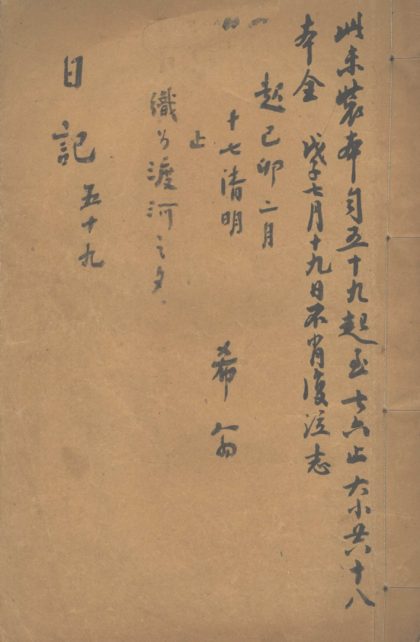 此未裝本自五十九起至七六止大小共十八
本全 戊子七月十九日不肖復泣志
起己卯二月
十七清明
希翁
止
織女渡河之夕
日記 五十九